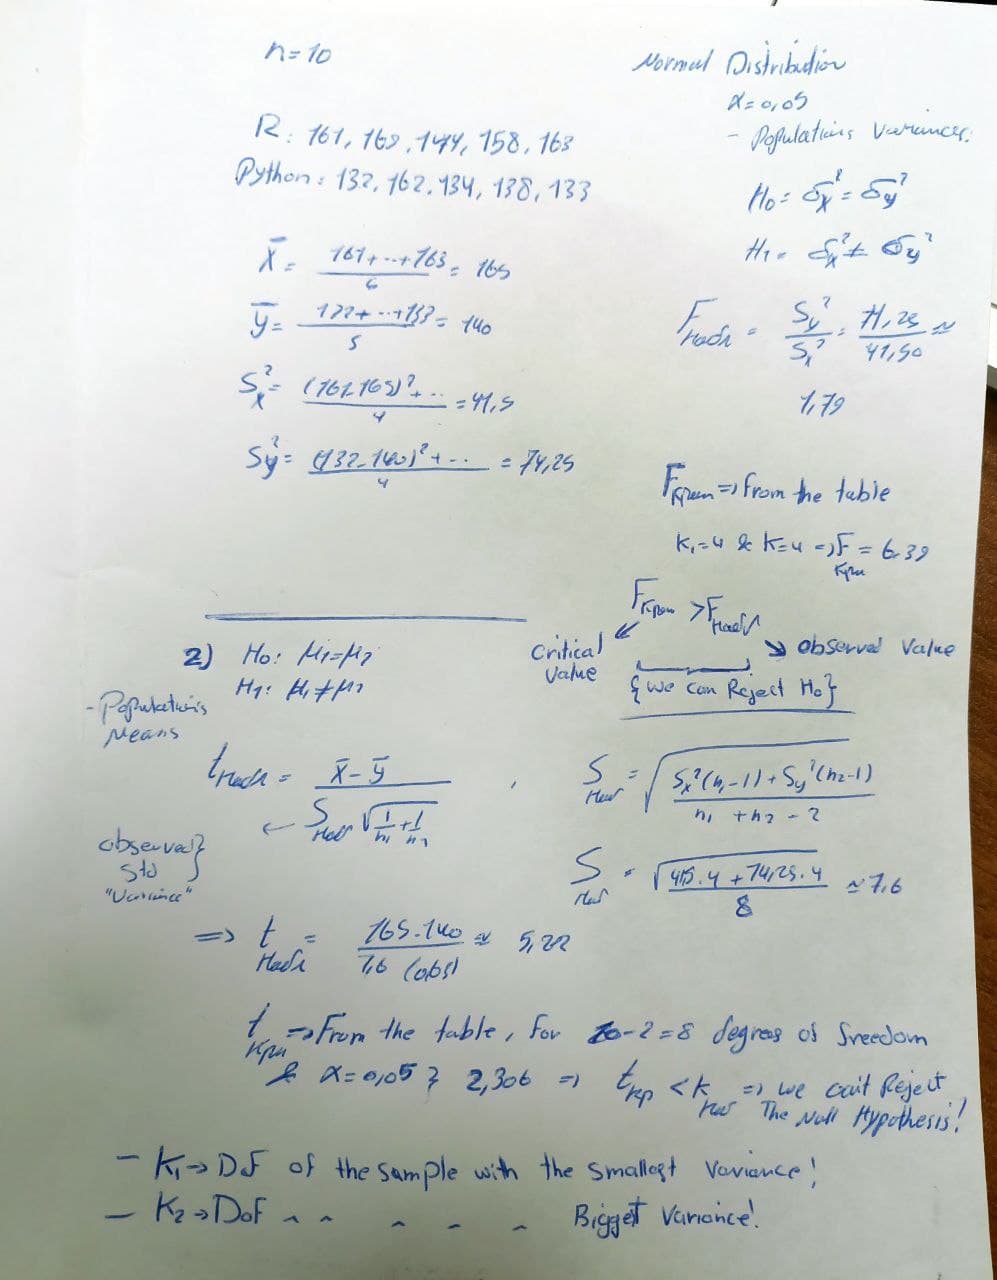 n=10
R: 161, 169, 144, 158, 163
Python: 132, 162, 134, 138, 133
X̄ = (161+...+163)/6 = 165
ȳ = (132+...+133)/5 = 140
Sx² = ((161-165)²+...)/4 = 41,5
Sy² = ((132-140)²+...)/4 = 74,25
Normal Distribution
α=0,05
- Populations Variances:
H₀ = σx² = σy²
H₁ = σx² ≠ σy²
Fнабл = Sy²/Sx² = 74,25/41,50 ≈
1,79
Fкрит => from the table
K₁=4 & K=4 => Fкри = 6.39
Fкрит > Fнабл
critical value
observed value
{we can Reject H₀}
2) H₀: μ₁=μ₂
H₁: μ₁≠μ₂
- Populations Means
tнабл = (X̄ - ȳ)/(Sнабл √(1/n₁ + 1/n₂)) , Sнаб = √((Sx²(n₁-1)+Sy²(n₂-1))/(n₁+n₂-2))
observed} std "Variance"
Sнаб = √((415.4 + 74,25.4)/8) ≈ 7,6
=> tнабл = (165-140)/(7,6 (obs)) ≈ 5,22
tкри => From the table, For 10-2=8 degrees of freedom
& α=0,05 } 2,306 => tкр < kнаб => we can't Reject
The Null Hypothesis!
- K₁ → DF of the sample with the smallest variance!
- K₂ → DoF " " " " " Biggest Variance!